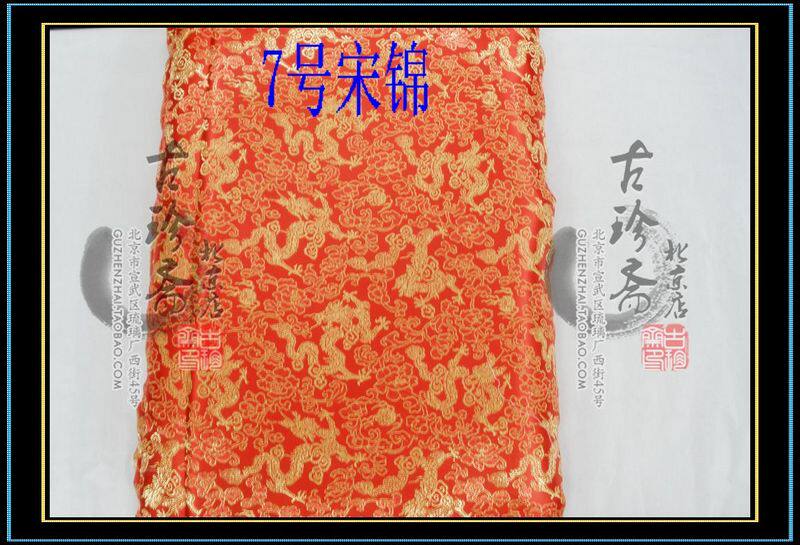 7号宋锦
古珍斋
北京店
北京市宣武区琉璃厂西街45号
GUZHENZHAI.TAOBAO.COM
古珍斋
北京店
北京市宣武区琉璃厂西街45号
GUZHENZHAI.TAOBAO.COM